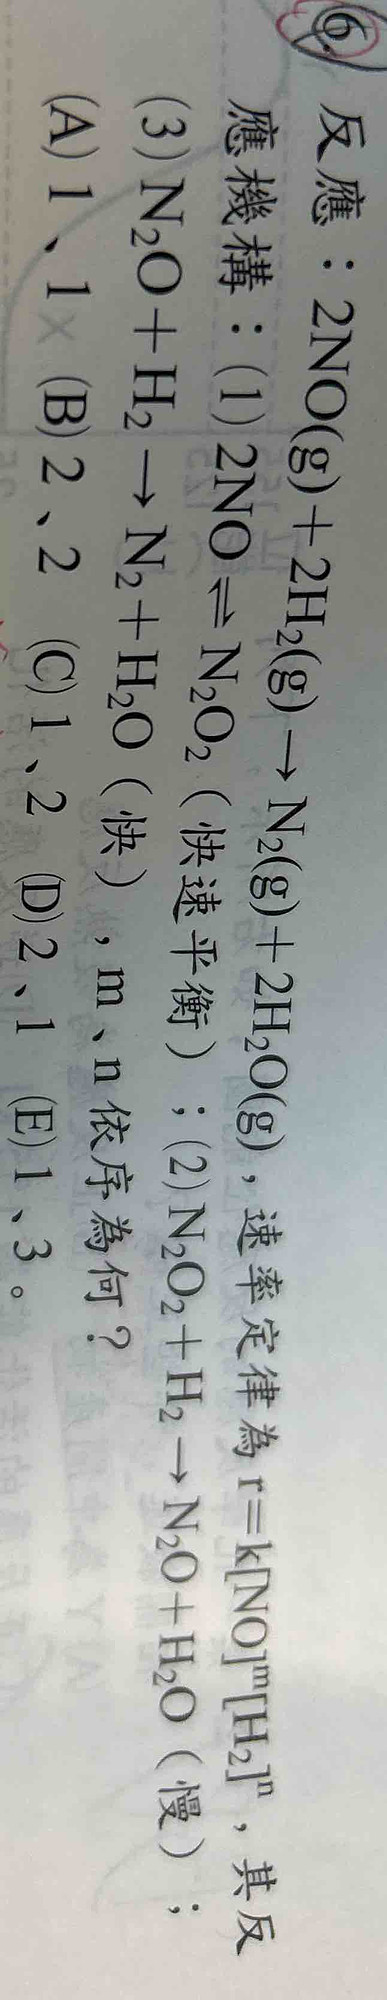 6. 反應：2NO(g)＋2H₂(g)→N₂(g)＋2H₂O(g)，速率定律為 r＝k[NO]ᵐ[H₂]ⁿ，其反
應機構：(1) 2NO⇌N₂O₂（快速平衡）；(2) N₂O₂＋H₂→N₂O＋H₂O（慢）；
(3) N₂O＋H₂→N₂＋H₂O（快），m、n 依序為何？
(A) 1、1 (B) 2、2 (C) 1、2 (D) 2、1 (E) 1、3。